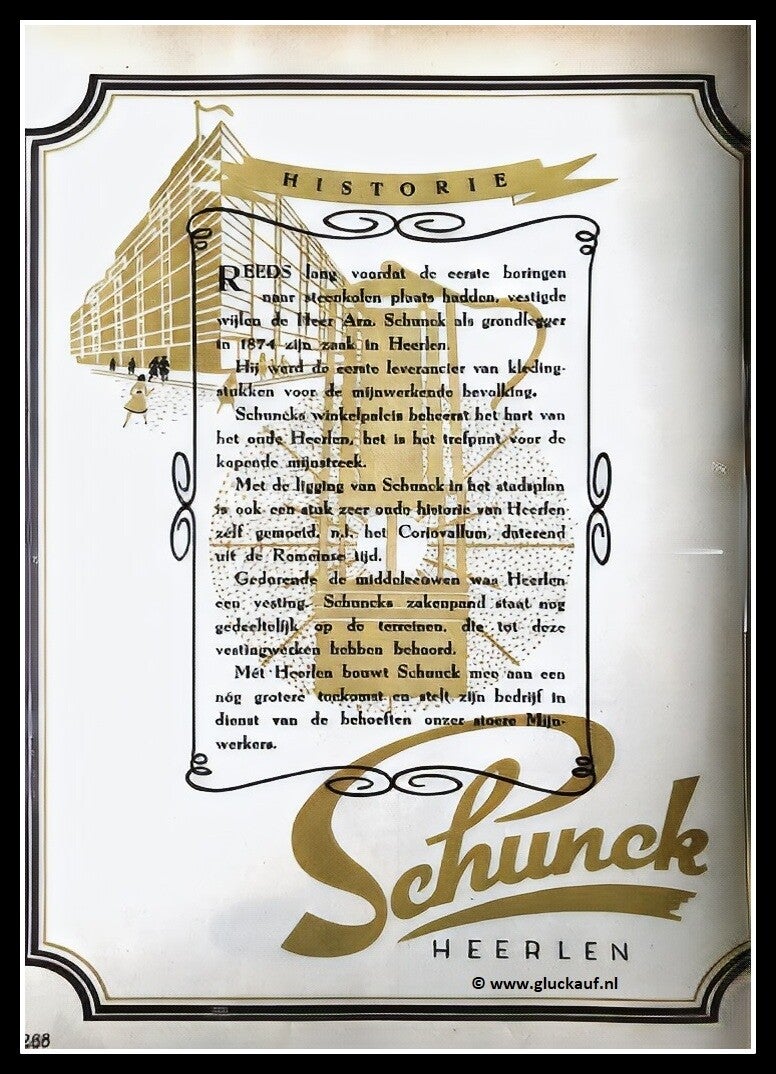 HISTORIE
REEDS lang voordat de eerste boringen
naar steenkolen plaats hadden, vestigde
wijlen de Heer Arn. Schunck als grondlegger
in 1874 zijn zaak in Heerlen.
Hij werd de eerste leverancier van kleding-
stukken voor de mijnwerkende bevolking.
Schuncks winkelpaleis beheerst het hart van
het oude Heerlen, het is het trefpunt voor de
kopende mijnstreek.
Met de ligging van Schunck in het stadsplan
is ook een stuk zeer oude historie van Heerlen
zelf gemoeid, n.l. het Coriovallum, daterend
uit de Romeinse tijd.
Gedurende de middeleeuwen was Heerlen
een vesting. Schuncks zakenpand staat nog
gedeeltelijk op de terreinen, die tot deze
vestingwerken hebben behoord.
Mét Heerlen bouwt Schunck mee aan een
nóg grotere toekomst en stelt zijn bedrijf in
dienst van de behoeften onzer stoere Mijn-
werkers.
Schunck
HEERLEN
© www.gluckauf.nl
268